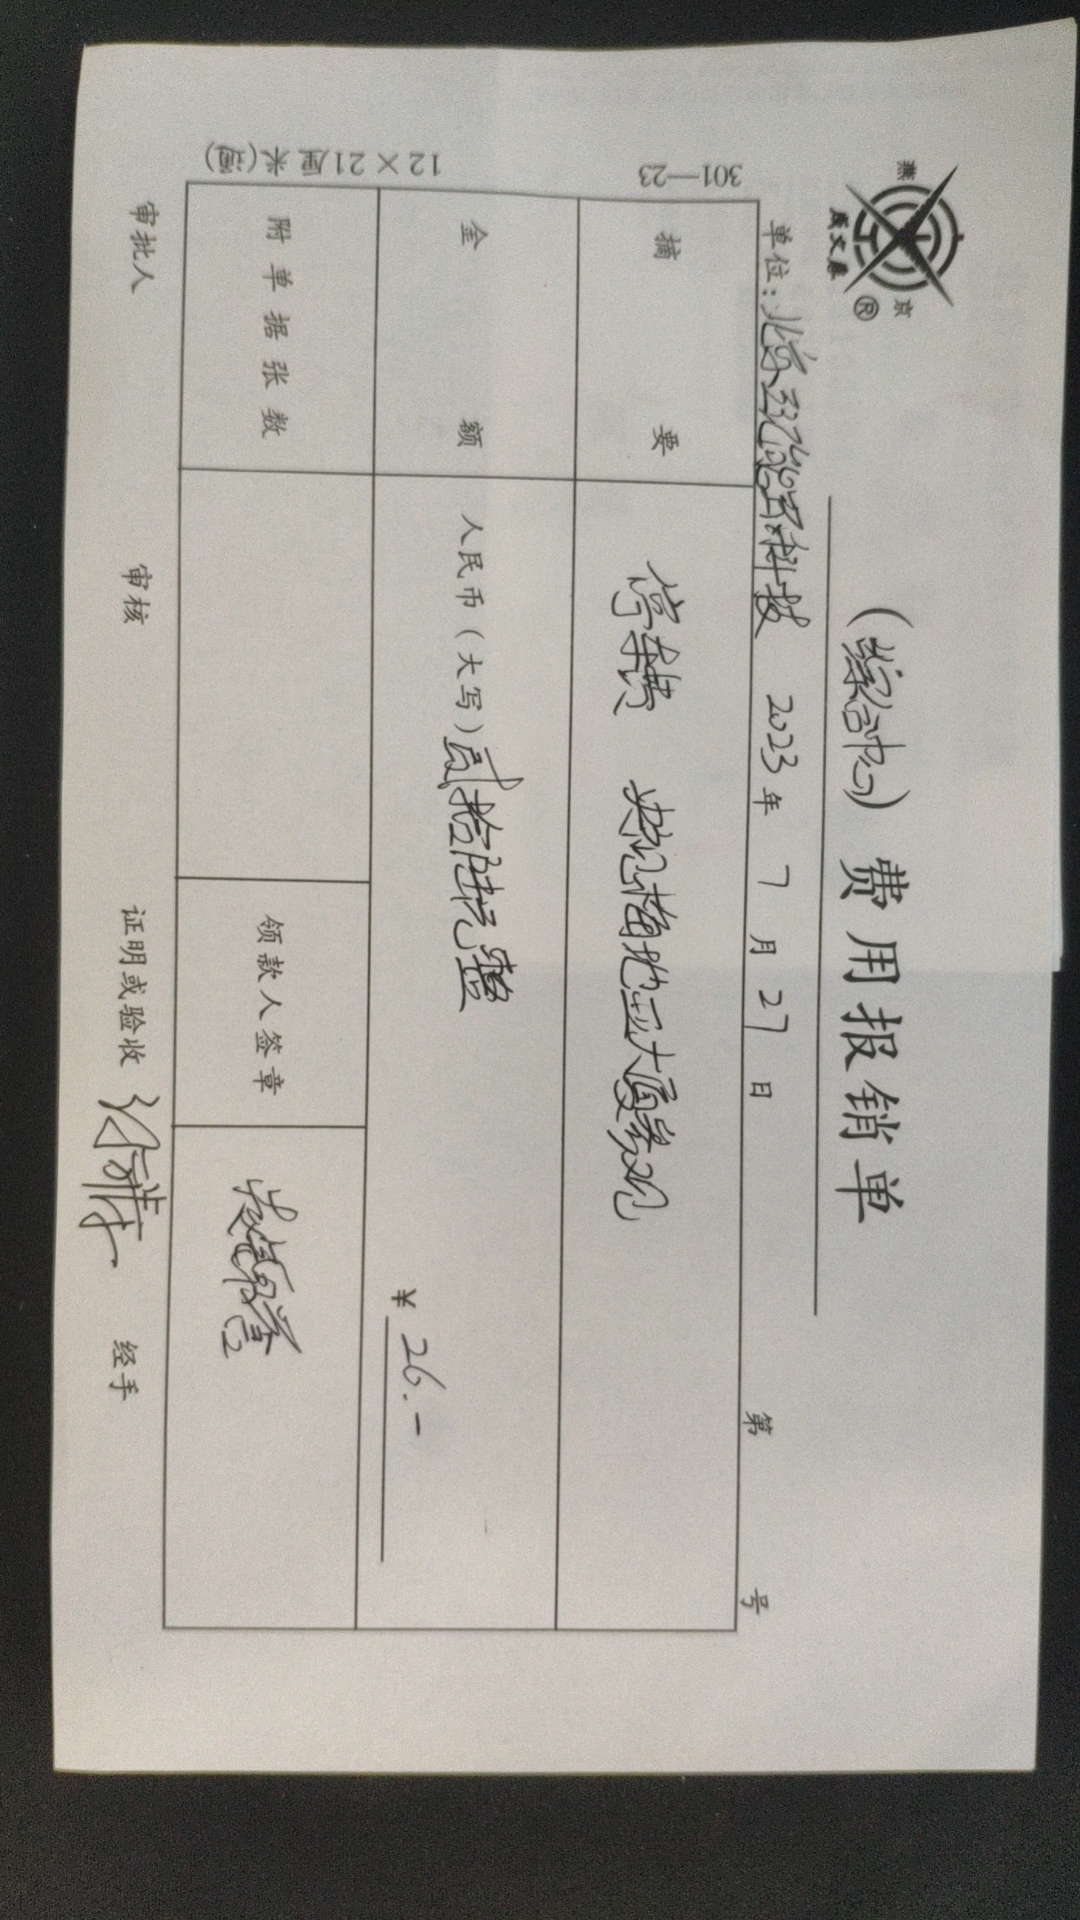 燕 京
成文厚 ®
(综合中心) 费用报销单
单位：北京 科技 2023年 7 月 27 日 第 号
摘 要 停车费 央视梅地亚大厦参观
金 额 人民币（大写）贰拾陆元整 ¥ 26.—
附单据张数 领款人签章
审批人 审核 证明或验收 经手
301—23
12×21厘米(通)